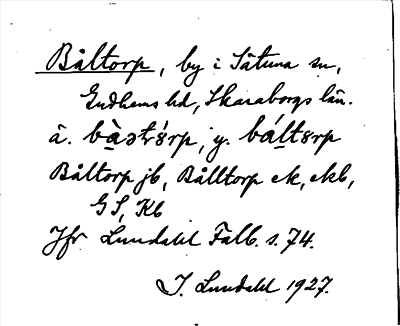 Båltorp, by i Sätuna sn,
Gudhems hd, Skaraborgs län.
ä. bàɔtrsrp, y. báltsrp
Båltorp jb, Bålltorp ek, ekb,
GS, Kb
Jfr Lundahl Falb. s. 74.
I. Lundahl 1927.